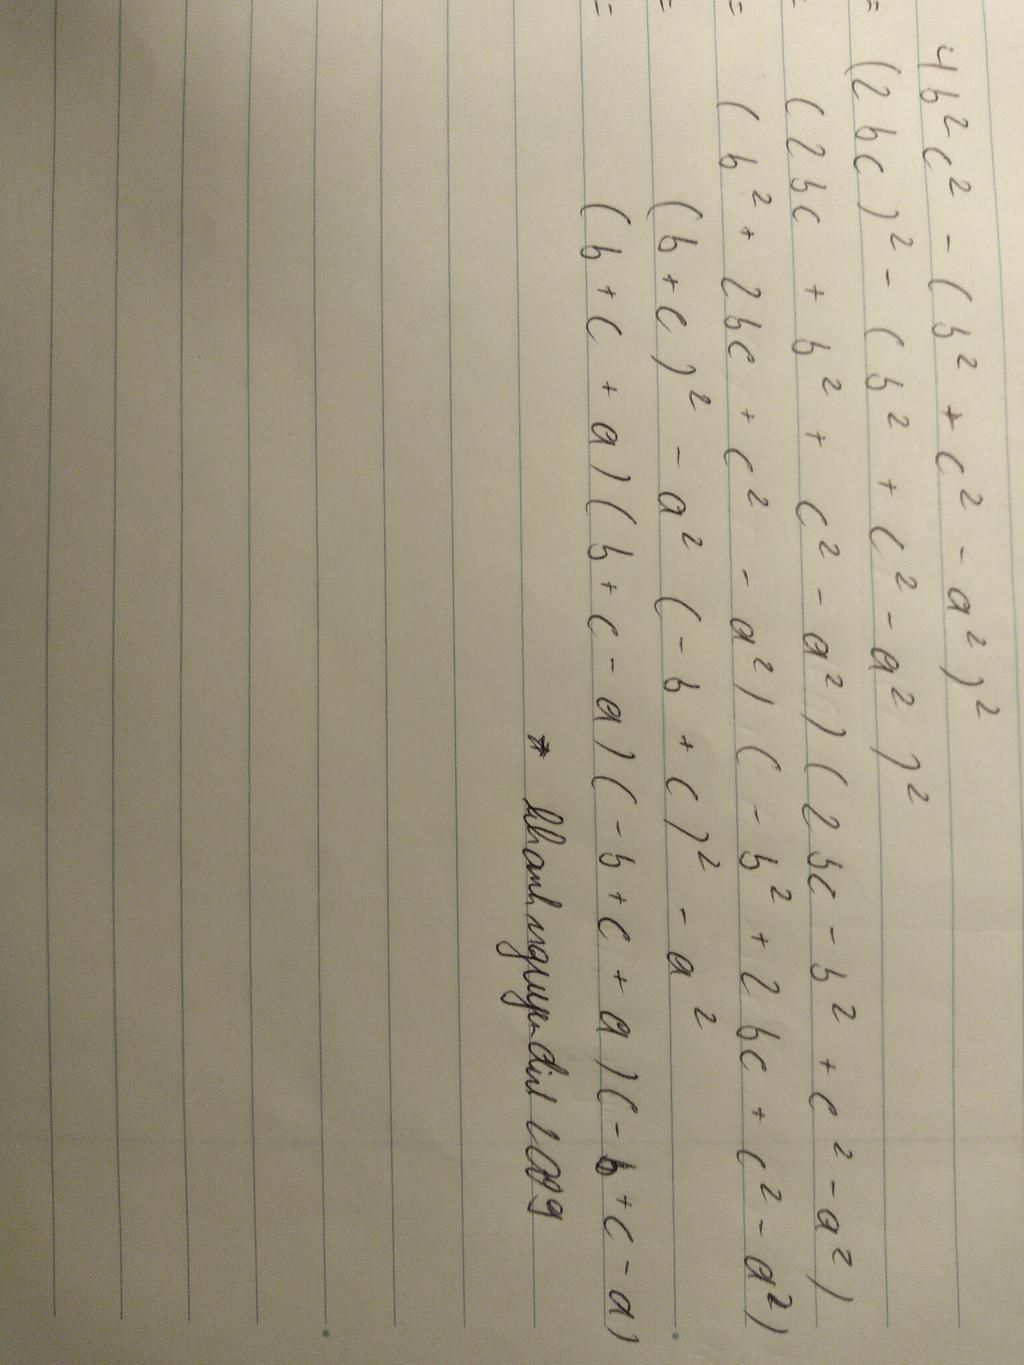 4b² c² - ( b² + c² - a² )²
= (2bc)² - ( b² + c² - a² )²
= ( 2bc + b² + c² - a² ) ( 2bc - b² + c² - a² )
= ( b² + 2bc + c² - a² ) ( - b² + 2bc + c² - a² )
= (b + c )² - a² ( - b + c )² - a²
= ( b + c + a ) ( b + c - a ) ( - b + c + a ) ( - b + c - a )
* khanhnguyendinh2009